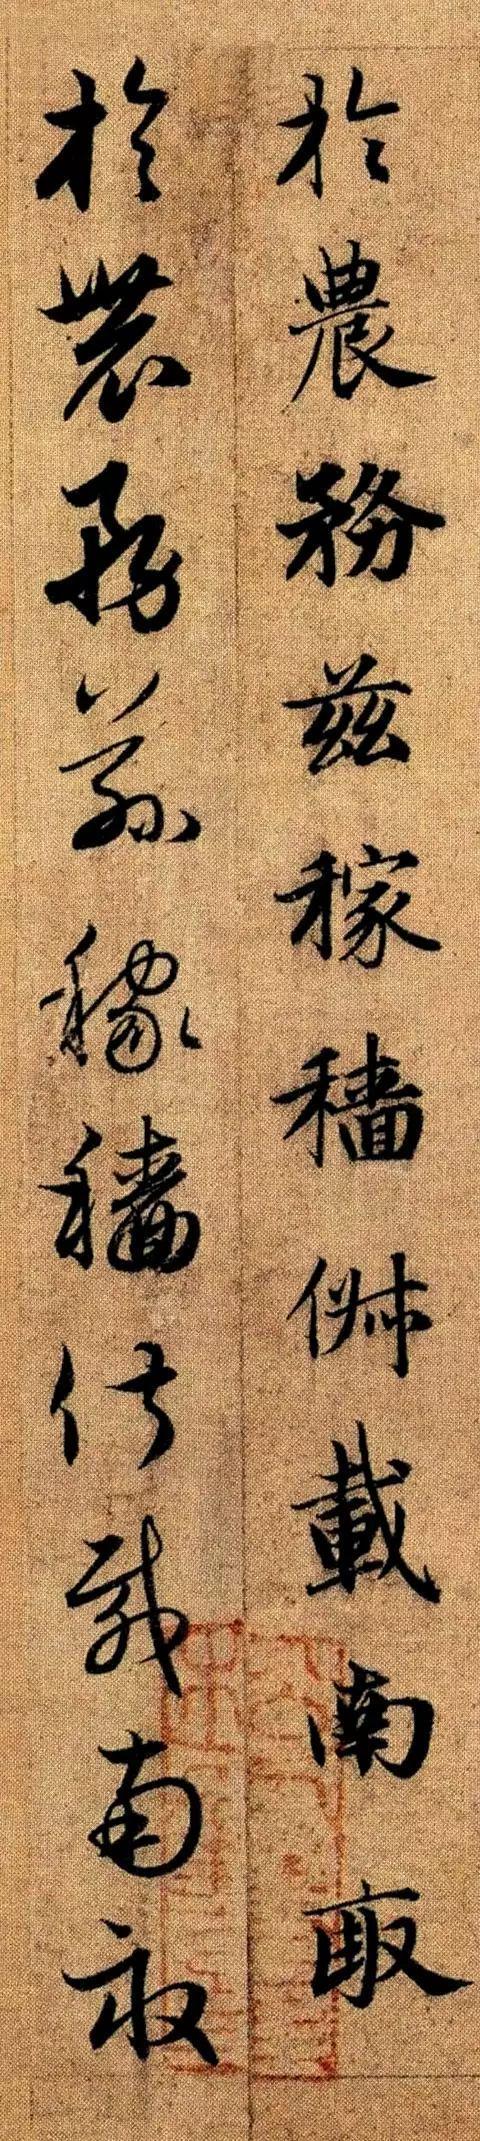 於農務兹稼穡俶載南畝
於農務兹稼穡俶載南畝